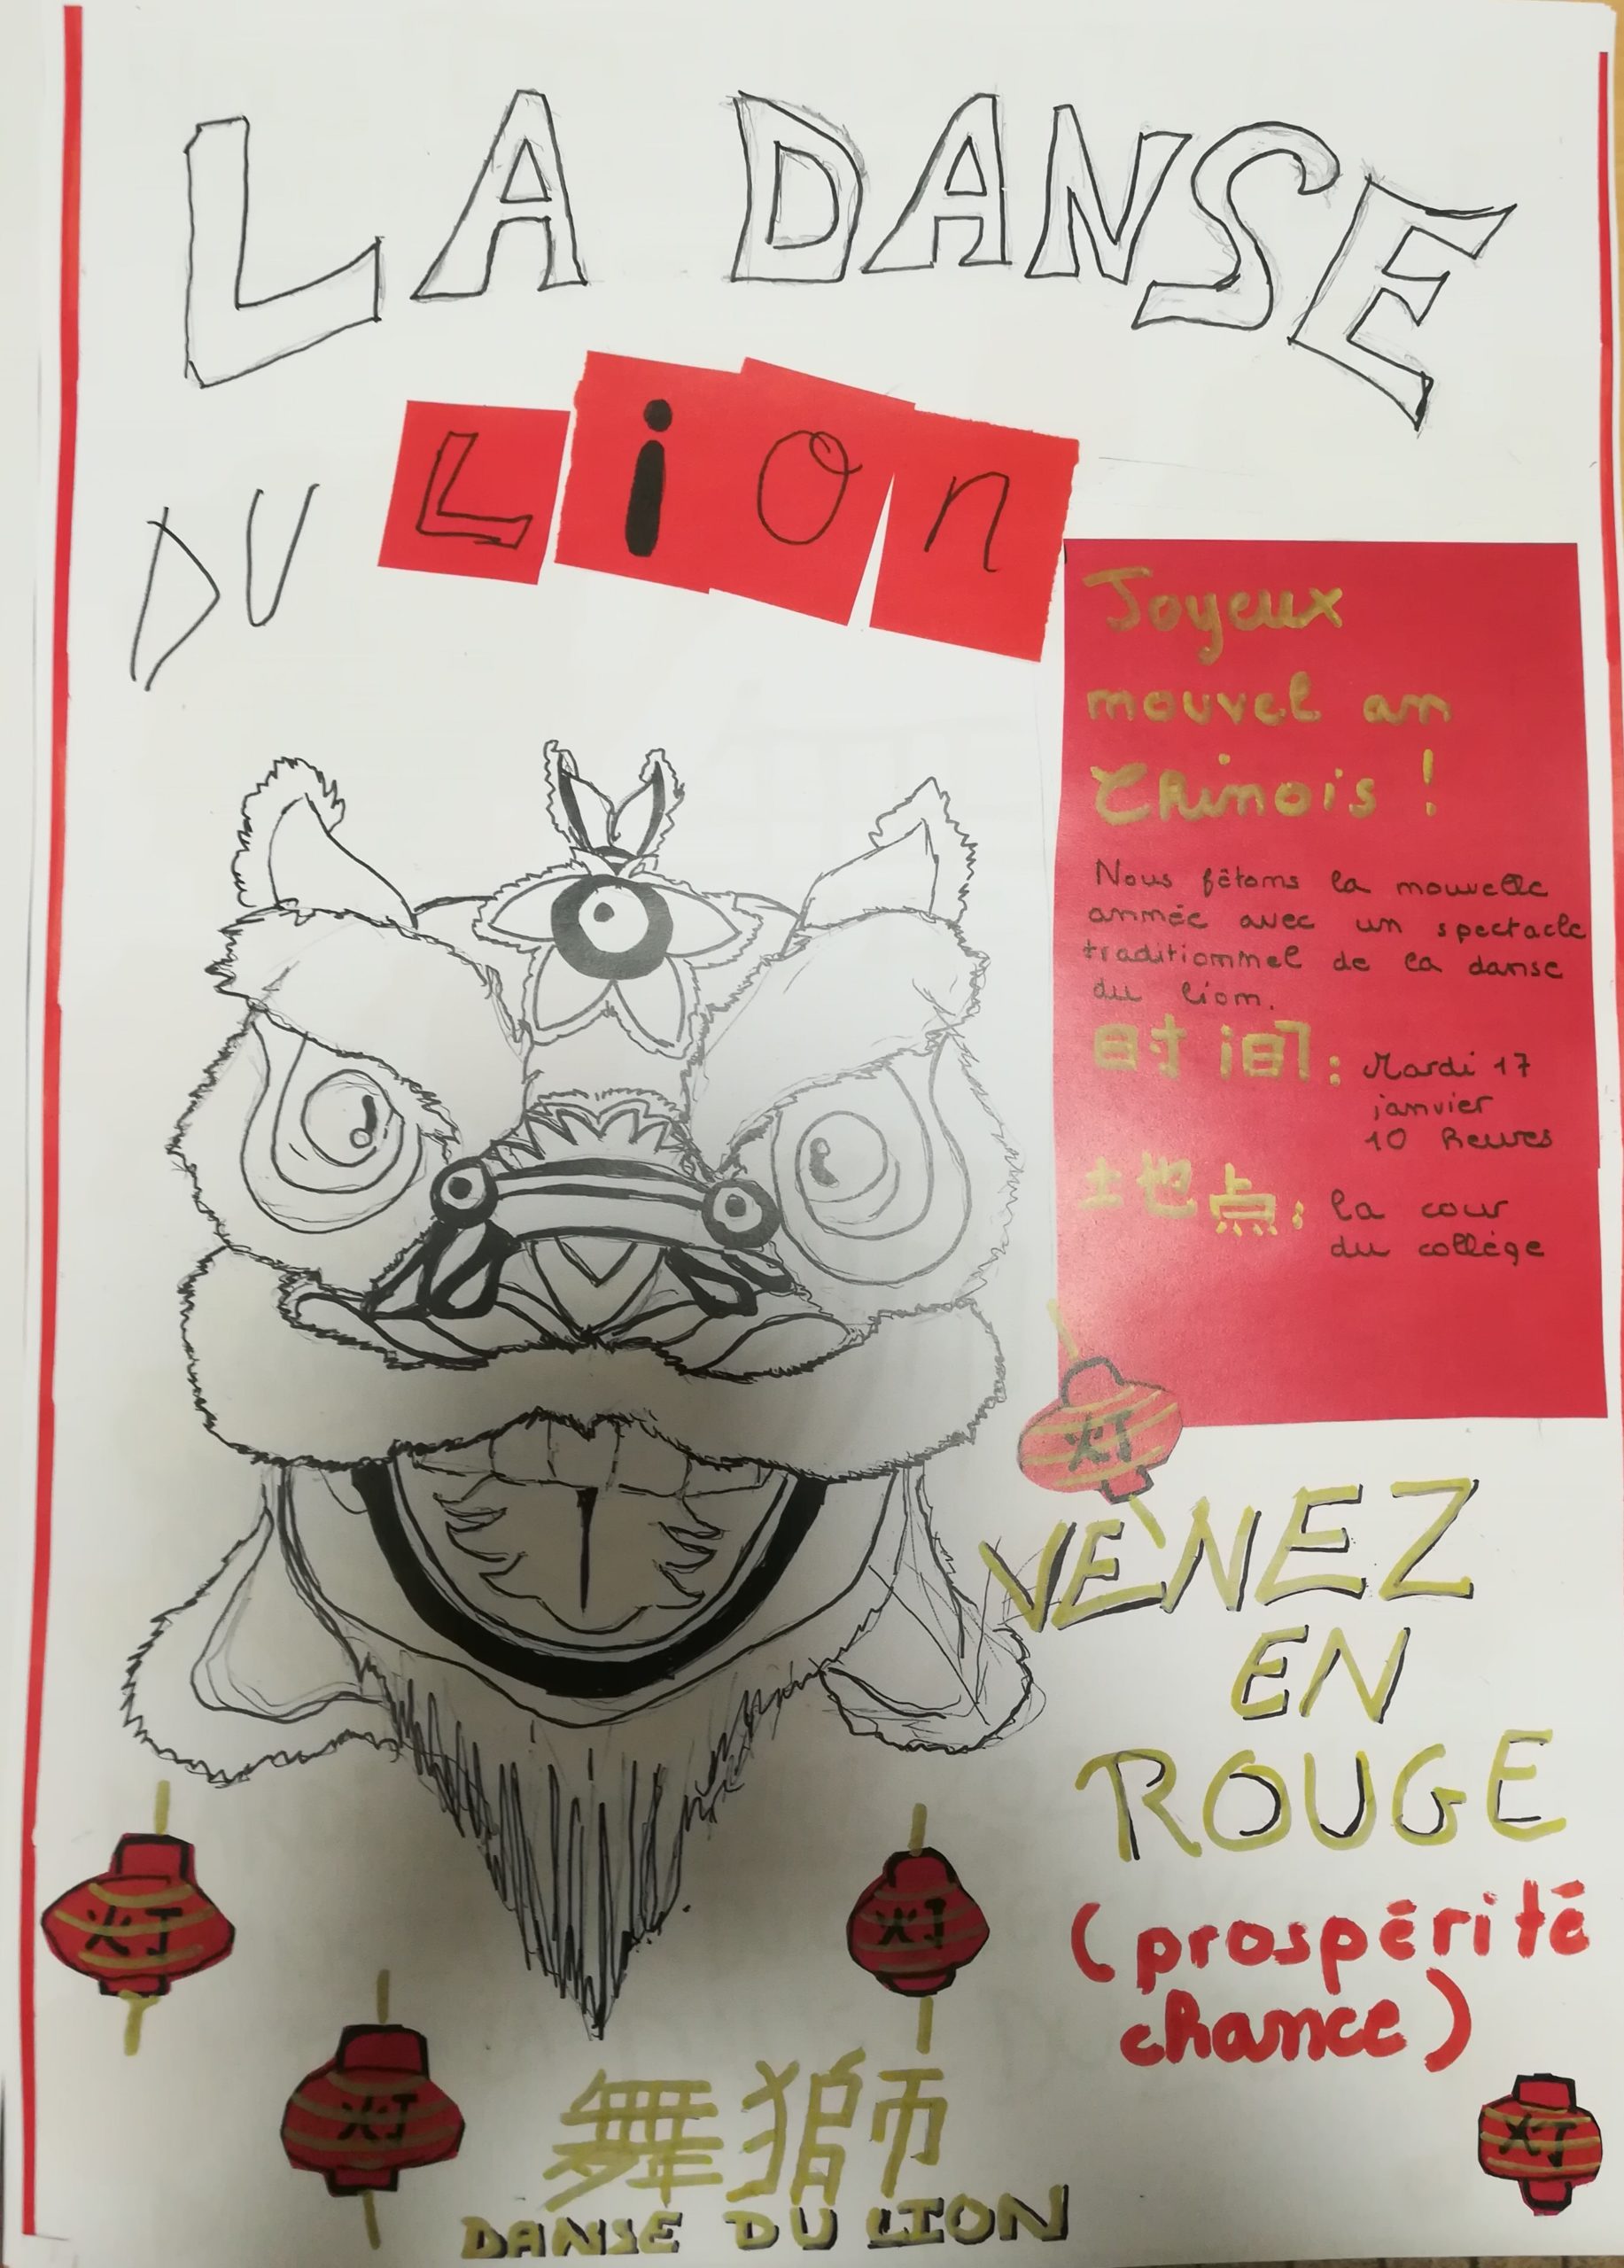 LA DANSE
DU Lion
Joyeux
nouvel an
Chinois !
Nous fêtons la nouvelle
année avec un spectacle
traditionnel de la danse
du lion.
时间: Mardi 17
janvier
10 heures
土地点: la cour
du collège
灯
VENEZ
EN
ROUGE
(prospérité
chance)
灯
灯
灯
灯
舞獅
DANSE DU LION